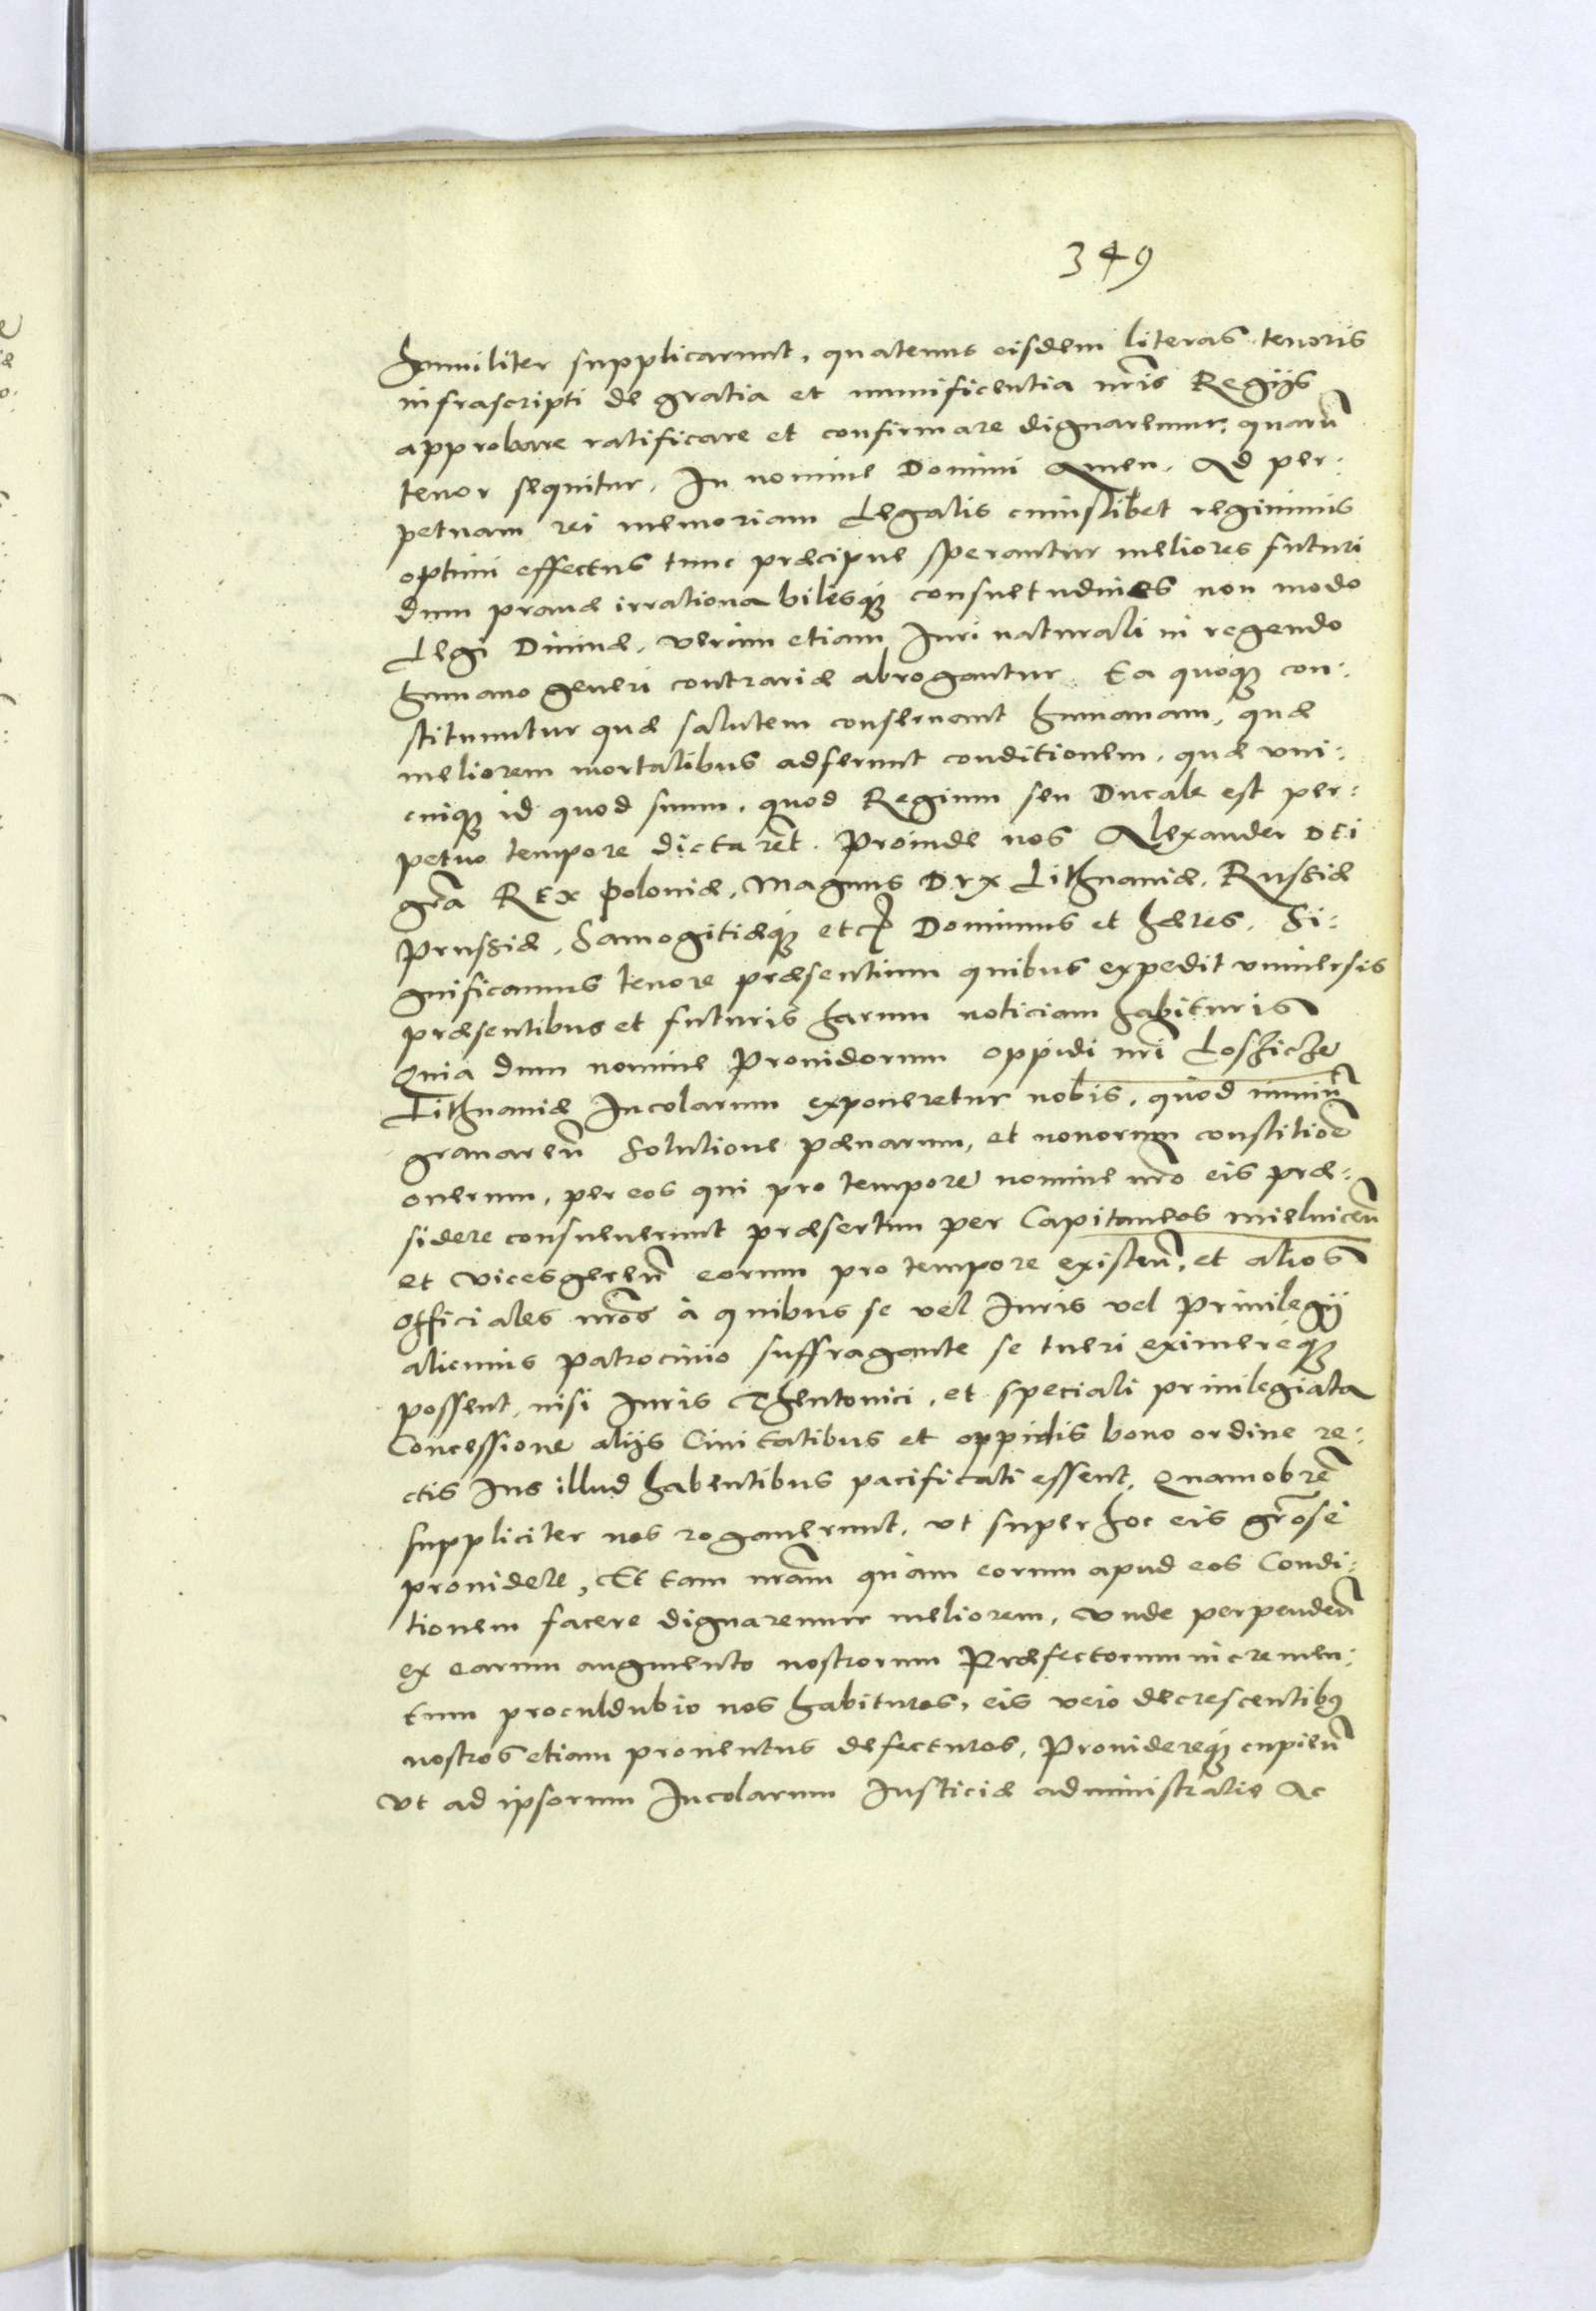 349
humiliter supplicarunt, quatenus eisdem literas tenoris
infrascripti de gratia et munificentia nr̃is Regijs
approbare ratificare et confirmare dignaremur, quarũ
tenor sequitur. In nomine Domini Amen. Ad per:
petuam rei memoriam Legalis cuiuslibet regiminis
optimi effectus tunc præcipue sperantur meliores futuri
dum prauæ irrationabilesq́ꝫ consuetudines non modo
Legi Diuinæ, verum etiam Iuri naturali in regendo
humano generi contrariæ abrogantur. Ea quoq́ꝫ con:
stituuntur quæ salutem conseruant humanam, quæ
meliorem mortalibus adferunt conditionem, quæ vni:
cuiqꝫ id quod suum, quod Regium seu Ducale est per:
petuo tempore dictarẽt. Proinde nos Alexander DEI
gr̃a REX Poloniæ, Magnus DVX Lithuaniæ, Russiæ
Prussiæ, Samogitiæq́ꝫ etc̃ Dominus et hæres. Si:
gnificamus tenore præsentium quibus expedit vniuersis
præsentibus et futuris harum noticiam habituris
Quia dum nomine Prouidorum oppidi nr̃i Loszicze
Lithuaniæ Incolarum exponeretur nobis, quod nimiũ
grauareñ solutione pænarum, et nouorum constitiõe
onerum, per eos qui pro tempore nomine nr̃o eis præ:
sidere consueuerunt præsertim per Capitaneos mielniceñ
et vicesgereñ eorum pro tempore existeñ, et alios
Officiales nr̃os à quibus se vel Iuris vel Priuilegij
alicuius patrocinio suffragante se tueri eximereq́ꝫ
possent, nisi Iuris Theutonici, et speciali priuilegiata
Concessione alijs Ciuitatibus et oppidis bono ordine re:
ctis Ius illud habentibus pacificati essent. Quamobrẽ
suppliciter nos rogauerunt, vt super hoc eis gr̃ose
prouidere, Et tam nr̃am quàm eorum apud eos Condi:
tionem facere dignaremur meliorem, Vnde perpendeñ
ex earum augmento nostrorum Præfectorum incremen:
tum proculdubio nos habituros, eis vero decrescentibꝰ
nostros etiam prouentus defecturos, Prouidereq́ꝫ cupieñ
Vt ad ipsorum Incolarum Iusticiæ administratio Ac